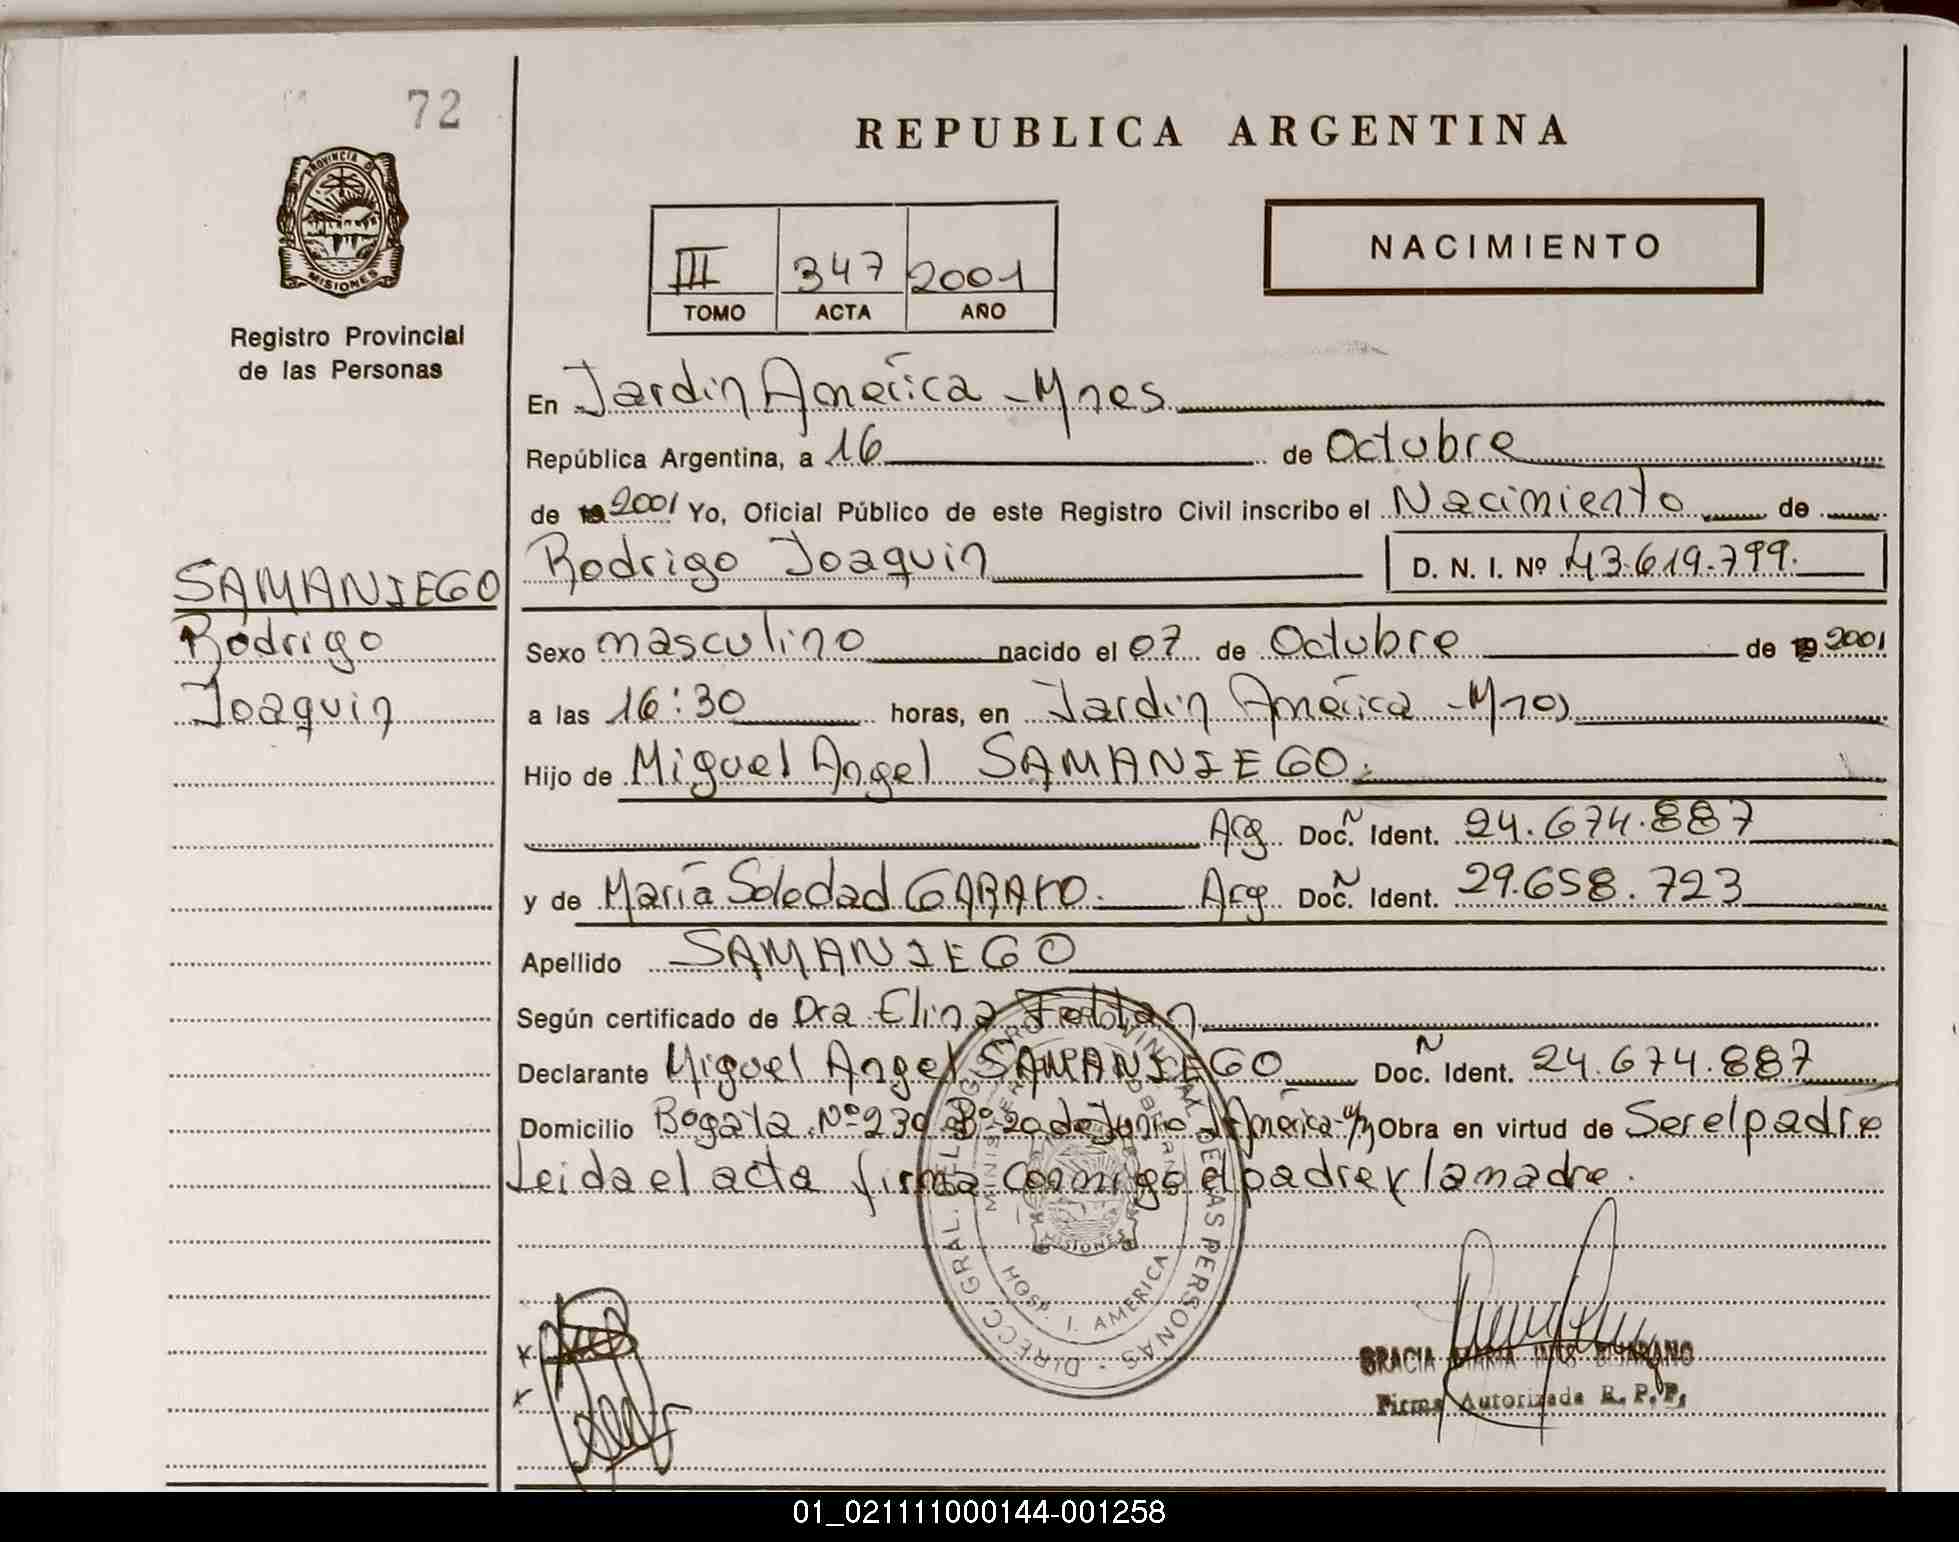 72
PROVINCIA DE
MISIONES
Registro Provincial
de las Personas
SAMANIEGO
Rodrigo
Joaquin
REPUBLICA ARGENTINA
III 347 2001
TOMO ACTA AÑO
NACIMIENTO
En Jardin América - Mnes
República Argentina, a 16 de Octubre
de 2001 Yo, Oficial Público de este Registro Civil inscribo el Nacimiento de
Rodrigo Joaquin D. N. I. Nº 43.619.799.
Sexo masculino nacido el 07 de Octubre de 2001
a las 16:30 horas, en Jardin América - Mnes
Hijo de Miguel Angel SAMANIEGO.
Arg. Doc. Ident. 24.674.887
y de María Soledad GARAYO. Arg. Doc. Ident. 29.658.723
Apellido SAMANIEGO
Según certificado de Dra Elina
Declarante Miguel Angel SAMANIEGO Doc. Ident. 24.674.887
Domicilio Bogata Nº 230 Bº 20 de Junio J. América Obra en virtud de Ser el padre
Leida el acta firma conmigo el padre y la madre.
DIRECC. GRAL. DEL REGISTRO PROVINCIAL DE LAS PERSONAS
HOSP. J. AMERICA
MISIONES
GRACIA MARIA INES BEJARANO
Firma Autorizada R. P. P.
01_021111000144-001258